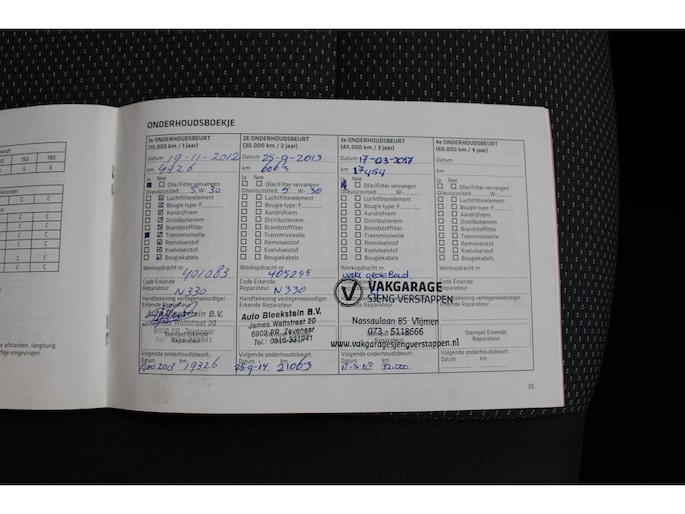 ONDERHOUDSBOEKJE
1e ONDERHOUDSBEURT
(15.000 km / 1 jaar)
Datum 19-11-2012
km 4326
Ja Nee
Olie/Filter vervangen
Olieviscositeit 5 W- 30
Luchtfilterelement
Bougie type: F
Aandrijfriem
Distributieriem
Brandstoffilter
Transmissieolie
Remvloeistof
Koelvloeistof
Bougiekabels
Werkopdracht nr.
401083
Code Erkende
Reparateur N330
Handtekening vertegenwoordiger
Erkende Reparateur
Stempel Erkende
Reparateur
Volgende onderhoudsbeurt:
Datum km
Nov 2013 19326
2E ONDERHOUDSBEURT
(30.000 km / 2 jaar)
Datum 25-9-2013
km 6063
Ja Nee
Olie/Filter vervangen
Olieviscositeit 5 W- 30
Luchtfilterelement
Bougie type: F
Aandrijfriem
Distributieriem
Brandstoffilter
Transmissieolie
Remvloeistof
Koelvloeistof
Bougiekabels
Werkopdracht nr.
405295
Code Erkende
Reparateur N330
Handtekening vertegenwoordiger
Auto Bleekstein B.V.
James Wattstraat 20
6902 PR Zevenaar
Tel.: 0316-331941
Volgende onderhoudsbeurt:
Datum km
25-9-14 21063
3e ONDERHOUDSBEURT
(45.000 km / 3 jaar)
Datum 17-03-2017
km 17454
Ja Nee
Olie/Filter vervangen
Olieviscositeit W-
Luchtfilterelement
Bougie type: F
Aandrijfriem
Distributieriem
Brandstoffilter
Transmissieolie
Remvloeistof
Koelvloeistof
Bougiekabels
Werkopdracht nr.
Code Erkende
Reparateur
VAKGARAGE
SJENG VERSTAPPEN
Nassaulaan 85 Vlijmen
073 - 5118666
www.vakgaragesjengverstappen.nl
Volgende onderhoudsbeurt:
Datum km
17-3-18 32.000
4e ONDERHOUDSBEURT
(60.000 km / 4 jaar)
Datum
km
Ja Nee
Olie/Filter vervangen
Olieviscositeit W-
Luchtfilterelement
Bougie type: F
Aandrijfriem
Distributieriem
Brandstoffilter
Transmissieolie
Remvloeistof
Koelvloeistof
Bougiekabels
Werkopdracht nr.
Code Erkende
Reparateur
Handtekening vertegenwoordiger
Erkende Reparateur
Stempel Erkende
Reparateur
Volgende onderhoudsbeurt:
Datum km
35